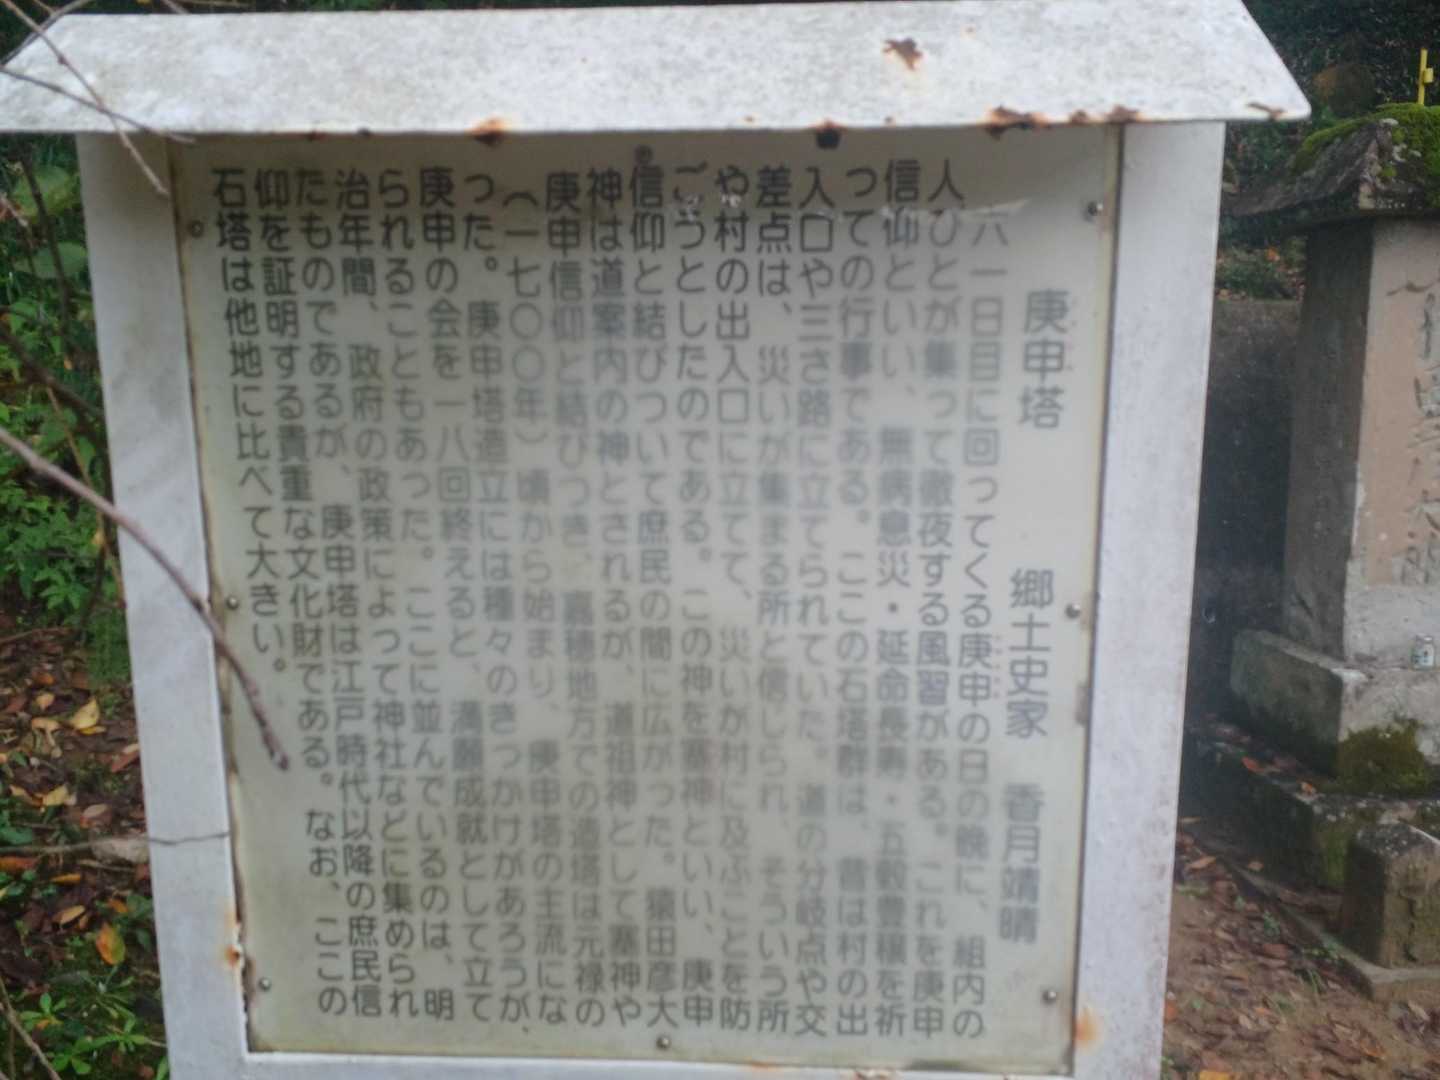 庚申塔　　郷土史家　香月靖晴
六一日目に回ってくる庚申の日の晩に、組内の
人びとが集って徹夜する風習がある。これを庚申
信仰といい、無病息災・延命長寿・五穀豊穣を祈
っての行事である。ここの石塔群は、昔は村の出
入口や三さ路に立てられていた。道の分岐点や交
差点は、災いが集まる所と信じられ、そういう所
や村の出入口に立てて、災いが村に及ぶことを防
ごうとしたのである。この神を塞神といい、庚申
信仰と結びついて庶民の間に広がった。猿田彦大
神は道案内の神とされるが、道祖神として塞神や
庚申信仰と結びつき、嘉穂地方での造塔は元禄の
（一七〇〇年）頃から始まり、庚申塔の主流にな
った。庚申塔造立には種々のきっかけがあろうが、
庚申の会を一八回終えると、満願成就として立て
られることもあった。ここに並んでいるのは、明
治年間、政府の政策によって神社などに集められ
たものであるが、庚申塔は江戸時代以降の庶民信
仰を証明する貴重な文化財である。なお、ここの
石塔は他地に比べて大きい。